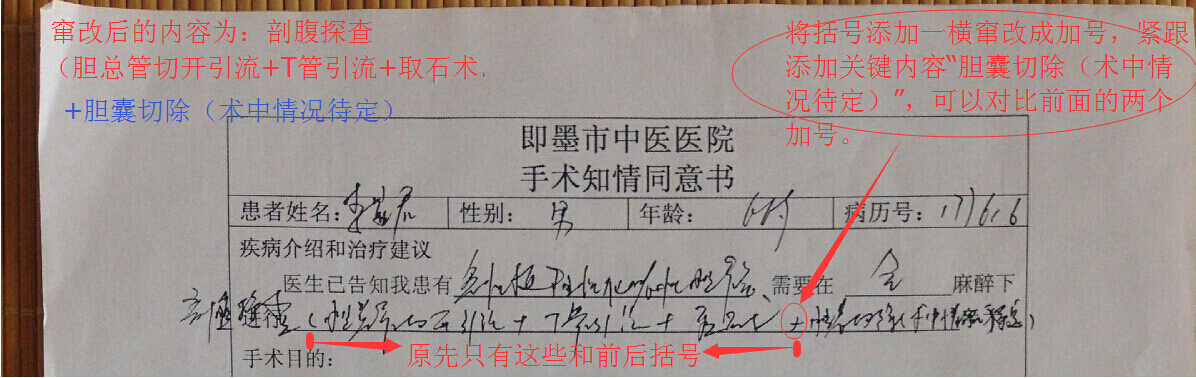 窜改后的内容为：剖腹探查
（胆总管切开引流+T管引流+取石术
+胆囊切除（术中情况待定）
将括号添加一横窜改成加号，紧跟
添加关键内容“胆囊切除（术中情
况待定）”，可以对比前面的两个
加号。
即墨市中医医院
手术知情同意书
患者姓名： 性别： 男 年龄： 病历号：177616
疾病介绍和治疗建议
医生已告知我患有 急性梗阻性化脓性胆管炎、需要在 全 麻醉下
剖腹探查（胆总管切开引流+T管引流+取石术+胆囊切除（术中情况待定）
原先只有这些和前后括号
手术目的：